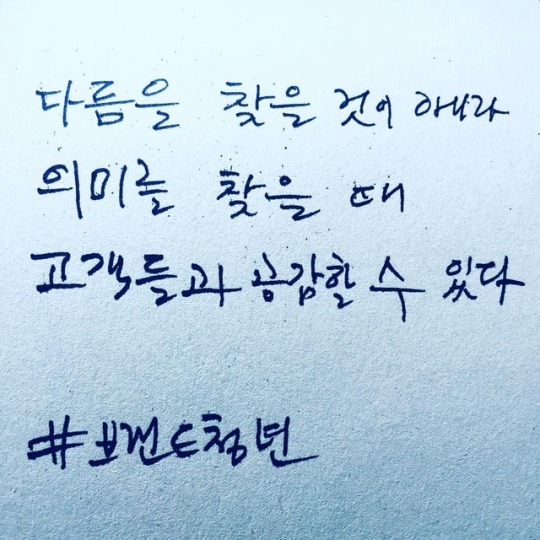 다름을 찾을 것이 아니라
의미를 찾을 때
고객들과 공감할 수 있다
#브랜드청년